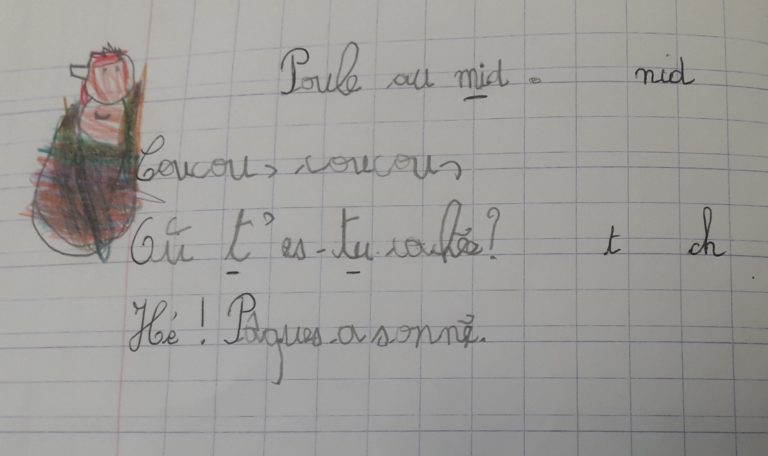 Poule au mid. nid
Coucou, coucou,
Où t'es-tu ? t ch
Hé ! Pâques a sonné.